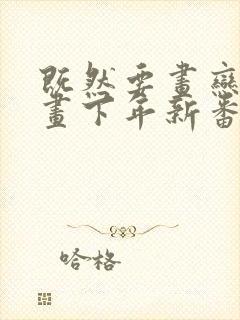 既然要畫戀
畫下年新番
哈格